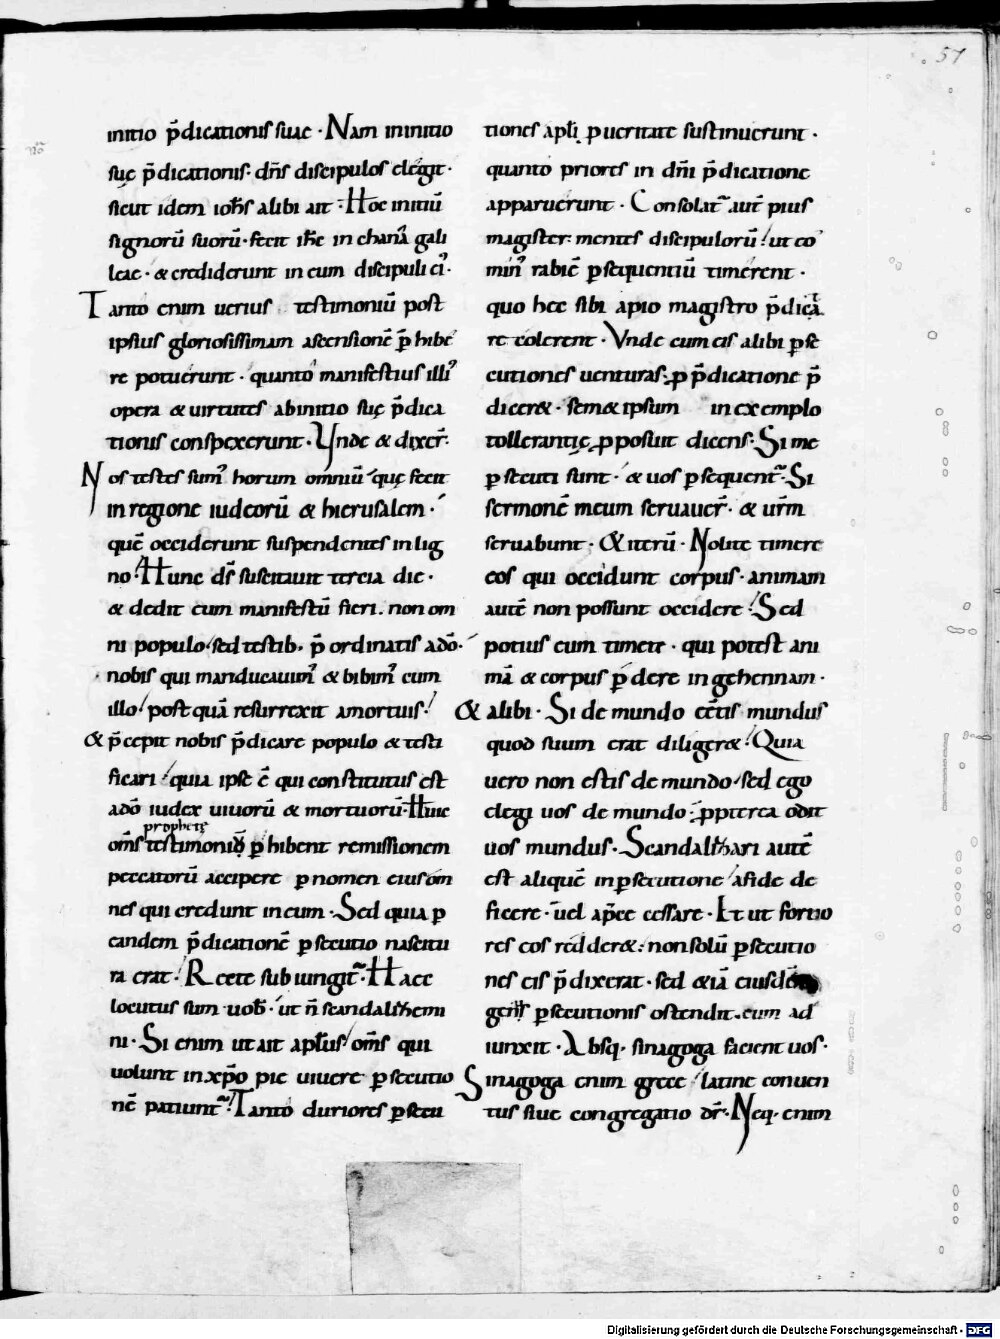 57
initio p̄dicationis suae · Nam in initio
suę p̄dicationis · dn̄s discipulos elegit ·
sicut idem ioh̄s alibi ait · Hoc initiū
signorū suorū · fecit ih̄c in chanā gali
leae · & crediderunt in eum discipuli eiꝰ ·
Tanto enim uerius testimoniū post
ipsius gloriosissimam ascensionē p̄hibe
re potuerunt · quanto manifestius illiꝰ
opera & uirtutes ab initio suę p̄dica
tionis conspexerunt · Vnde & dixer̄ ·
Nos testes sumꝰ horum omniū quę fecit
in regione iudeorū & hierusalem ·
quē occiderunt suspendentes in lig
no · Hunc ds̄ suscitauit tercia die ·
& dedit eum manifestū fieri · non om
ni populo sed testib · p̄ordinatis a dō ·
nobis qui manducauimꝰ & bibimꝰ cum
illo postquā resurrexit a mortuis
& p̄cepit nobis p̄dicare populo & testi
ficari quia ipse ē qui constitutus est
a dō iudex uiuorū & mortuorū · Huic
prophetę
om̄s testimoniū p̄hibent remissionem
peccatorū accipere p nomen eius om
nes qui credunt in eum · Sed quia p
eandem p̄dicationē psecutio nascitu
ra erat · Recte subiungit̃ · Haec
locutus sum uob̄ · ut n̄ scandalizemi
ni · Si enim ut ait apłus om̄s qui
uolunt in xp̄o pie uiuere psecutio
nē patiunt̃ · Tanto duriores psecu
tiones apłi p ueritate sustinuerunt ·
quanto priores in dn̄i p̄dicatione
apparuerunt · Consolat̃ aut̄ pius
magister mentes discipulorū ut eo
minꝰ rabiē psequentiū timerent ·
quo hec sibi a pio magistro p̄dica
re colerent · Vnde cum eis alibi pse
cutiones uenturas p p̄dicatione p̄
dicer& · sem&ipsum in exemplo
tollerantię pposuit dicens · Si me
psecuti sunt · & uos psequent̃ · Si
sermonē meum seruauer̄ · & ur̄m
seruabunt · & iterū · Nolite timere
eos qui occidunt corpus · animam
autē non possunt occidere · Sed
potius eum timete · qui potest ani
mā & corpus pdere in gehennam ·
& alibi · Si de mundo eētis mundus
quod suum erat diliger& · Quia
uero non estis de mundo sed ego
elegi uos de mundo ppterea odit
uos mundus · Scandalizari autē
est aliquē in psecutione a fide de
ficere · uel ap̄ce cessare · Et ut fortio
res eos redder& · non solū psecutio
nes eis p̄dixerat · sed &iā eiusdē
psecutionis ostendit cum ad
iunxit · Absq · sinagoga facient uos ·
Sinagoga enim grece latine conuen
tus siue congregatio dr̄ · Neq · enim
Digitalisierung gefördert durch die Deutsche Forschungsgemeinschaft - DFG